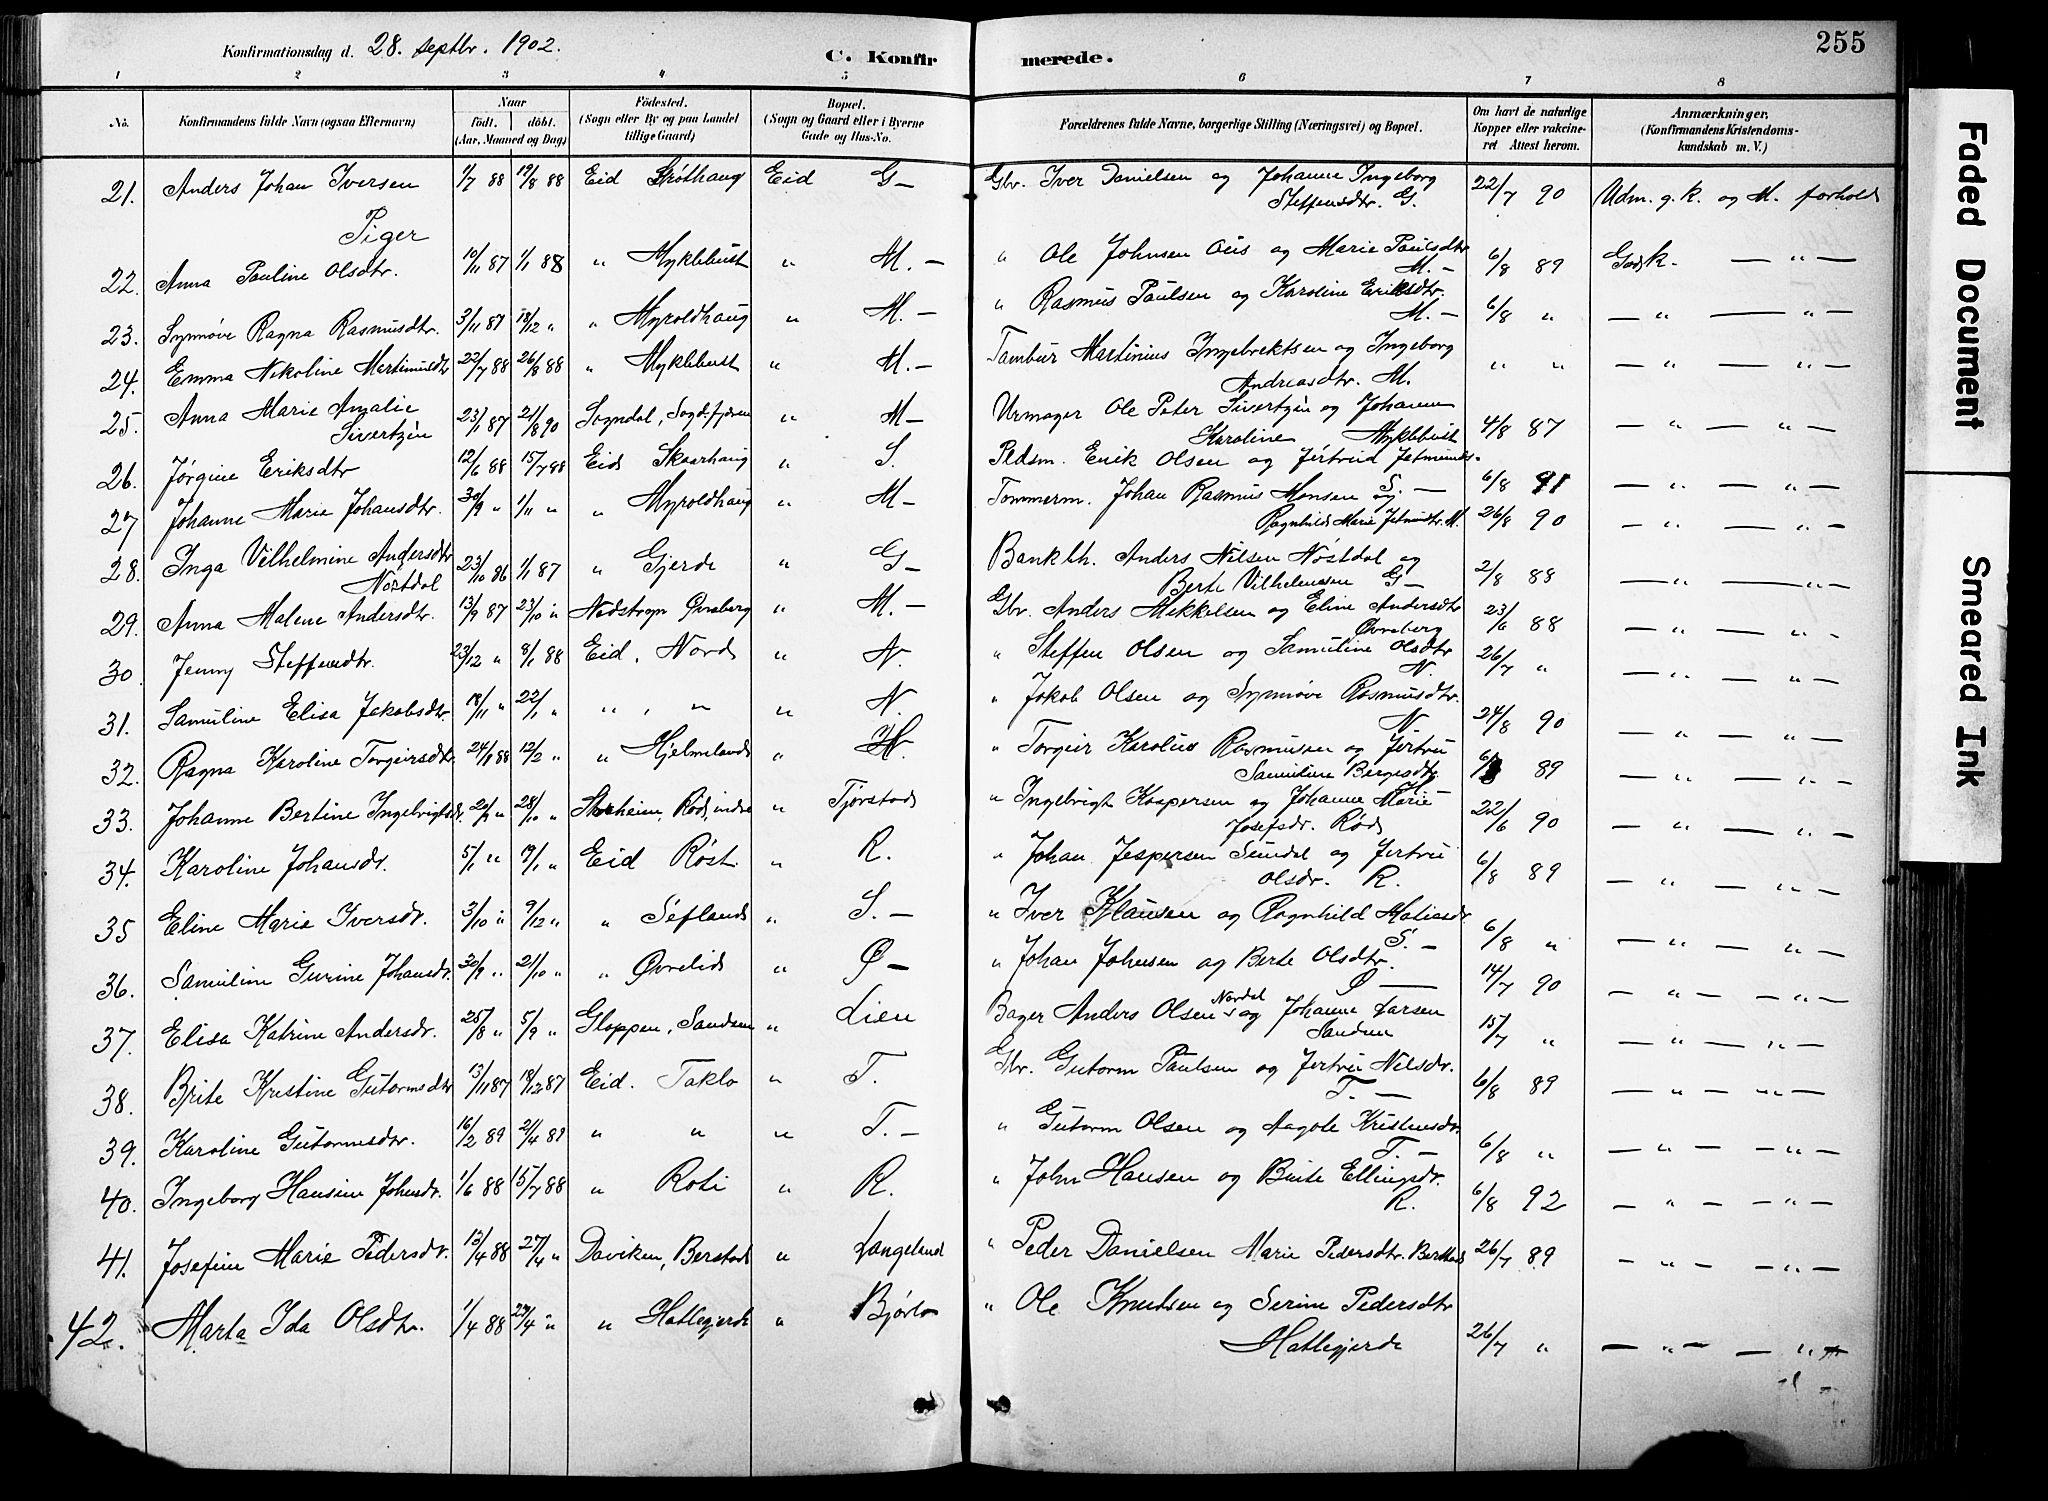 Konfirmationsdag d. 28. septbr. 1902.
C. Konfir merede. 255
1 2 3 4 5 6 7 8
No. Konfirmandens fulde Navn (ogsaa Efternavn) Naar født. døbt. (Aar, Maaned og Dag) Födested. (Sogn eller By og paa Landet tillige Gaard) Bopæl. (Sogn og Gaard eller i Byerne Gade og Hus-No. Forældrenes fulde Navne, borgerlige Stilling (Næringsvei) og Bopæl. Om havt de naturlige Kopper eller vakcineret Attest herom. Anmærkninger. (Konfirmandens Kristendomskundskab m. V.)
21. Anders Johan Iversen 1/7 88 19/8 88 Eid Eid G— Gbr. Iver Danielsen og Johanne Ingeborg Steffensdtr. G. 22/7 90 Udm. g. k. og M. forhold
Piger
22. Anna Pauline Olsdtr. 10/11 87 1/1 88 " Myklebust " M.— " Ole Johnsen og Marie Paulsdtr M.— 6/8 89 God k. — " —
23. Synnøve Ragna Rasmusdtr. 3/11 87 18/12 " " Myroldhaug " M.— " Rasmus Paulsen og Karoline Eriksdtr. M.— 6/8 " — " — " —
24. Emma Nikoline Martinusdtr 22/7 88 26/8 88 " Myklebust " M.— Tambur Martinius Ingebrektsen og Ingeborg Andreasdtr. M. " " — " — " —
25. Anna Marie Amalie Sivertzen 23/1 87 21/8 90 Sogndal, Sogdfjøren " M— Urmager Ole Peter Sivertzen og Johanne Karoline Myklebust 4/8 87 — " — " —
26. Jørgine Eriksdtr 12/6 88 15/7 88 Eid Skaarhaug " S. Pldsm. Erik Olsen og Jertrud Jetmunds- S.— 6/8 91 — " — " —
27 Johanne Marie Johansdtr. 30/9 " 1/11 " " Myroldhaug " M— Tommerm. Johan Rasmus Monsen og Ragnhild Marie Jetmundtr. M. 26/8 90 — " — " —
28. Inga Vilhelmine Andersdtr Nøstdal 23/10 86 1/1 87 " Gjerde " G— Bankbh. Anders Nilsen Nøstdal og Berte Vilhelmsen G— 2/8 88 — " — " —
29. Anna Malene Andersdtr. 13/9 87 23/10 " Nedstryn Øvreberg " M.— Gbr. Anders Mikkelsen og Eline Andersdtr Øvreberg 23/6 88 — " — " —
30. Jenny Steffensdtr. 23/12 " 8/1 88 Eid, Nord " N. " Steffen Olsen og Samuline Olsdtr N. 26/7 " — " — " —
31. Samuline Elisa Jakobsdtr. 19/11 " 22/1 " " " " N. " Jakob Olsen og Synnøve Rasmusdtr. N 24/8 90 — " — " —
32. Ragna Karoline Torgeirsdtr. 24/1 88 12/2 " " Hjelmeland " H. " Torgeir Karolius Rasmusen og Jertru Samuline Bergesdtr 89 — " — " —
33. Johanne Bertine Ingebrigtsdr. 20/9 " 28/10 " Starheim, Rød, indre " Tjørstad " Ingebrigt Kaspersen og Johanne Marie Josefsdr. Rød 22/6 90 — " — " —
34. Karoline Johansdr. 5/1 " 19/1 " Eid Røst " R. " Johan Jespersen Sundal og Jertru Olsdr. R. 6/8 89 — " — " —
35 Eline Marie Iversdr. 3/10 " 9/12 " " Sefland " S.— " Iver Klausen og Ragnhild Matiasdr S.— 6/8 " — " — " —
36. Samuline Gurine Johansdr. 30/9 " 21/10 " " Øvrelid " Ø— " Johan Johnsen og Berte Olsdtr. Ø— 14/7 90 — " — " —
37. Elisa Katrine Andersdr. 25/8 " 5/9 " Gloppen, Sanden " Lien Bager Anders Olsen Nordal og Johanne Larsen Sanden 15/7 " — " — " —
38. Brite Kristine Gutormsdtr 13/11 87 18/12 87 Eid. Taklo " T. Gbr. Gutorm Paulsen og Jertru Nilsdr. T.— 6/8 89 — " — " —
39. Karoline Gutormsdr. 16/2 89 21/4 89 " " " T.— " Gutorm Olsen og Aagote Kristensdr T.— 6/8 " — " — " —
40. Ingeborg Hansine Johnsdr. 1/6 88 15/7 88 " Roti " R. " John Hansen og Brite Ellingsdr. R. 6/8 92 — " — " —
41. Josefine Marie Pedersdr. 13/4 88 27/4 " Daviken, Berstad " Langeland " Peder Danielsen Marie Pedersdtr. Berstad 26/7 89 — " — " —
42. Marta Ida Olsdtr. 1/4 88 29/4 " " Hatlegjerde " Bjørlo " Ole Knutsen og Serine Pedersdtr Hatlegjerde 26/7 " — " — " —
Faded Document
Smeared Ink